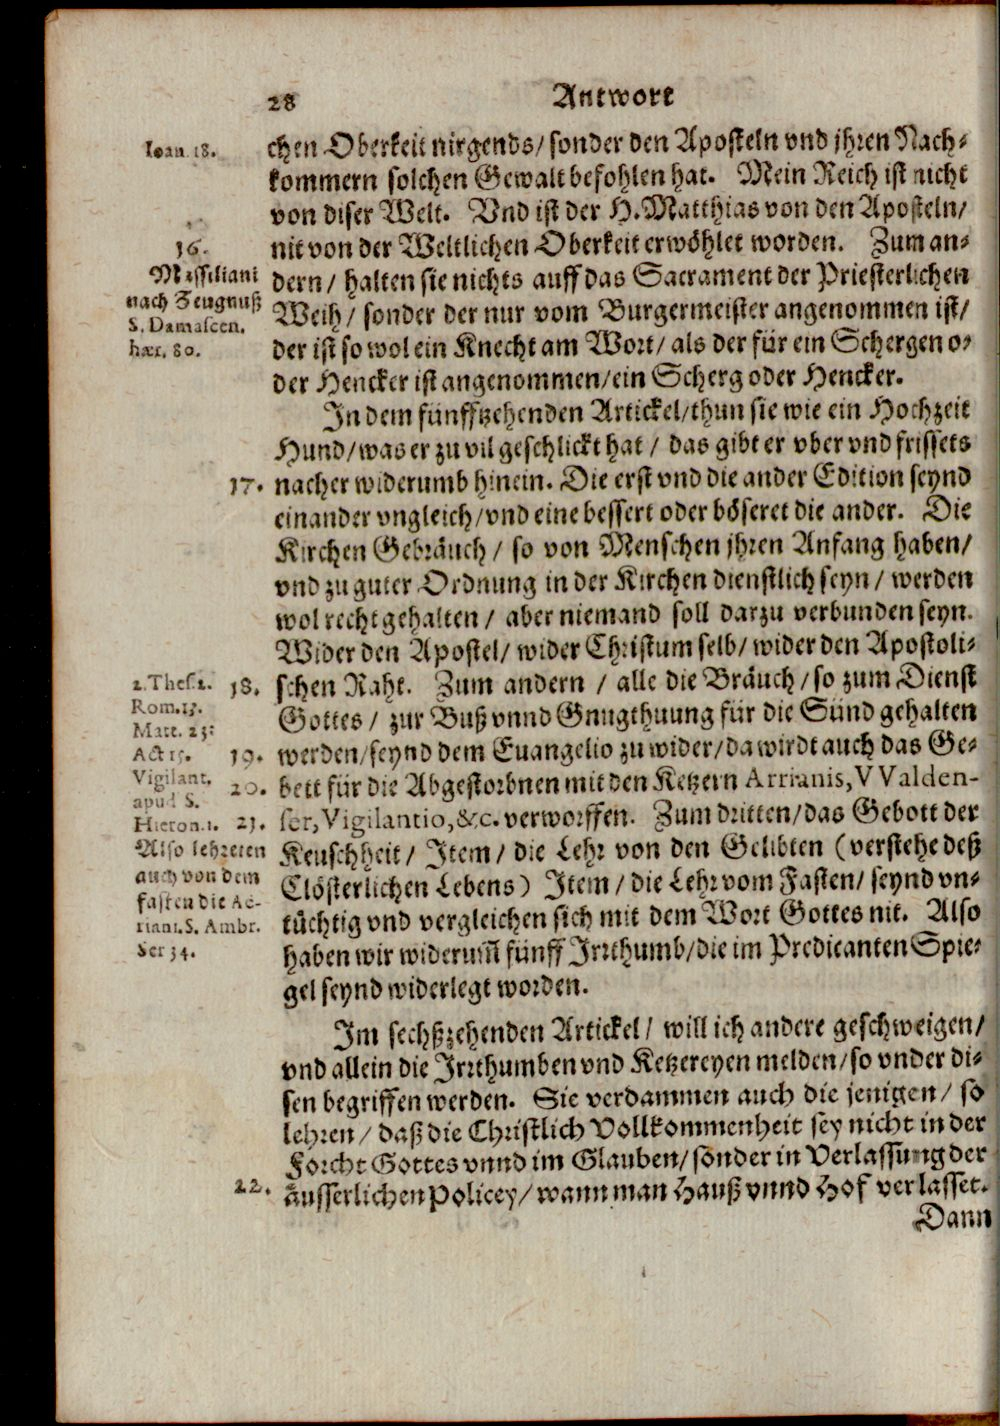 28 Antwort
Ioan. 18.
chen Oberkeit nirgends/ sonder den Aposteln vnd jhren Nach-
kommern solchen Gewalt befohlen hat. Mein Reich ist nicht
von diser Welt. Vnd ist der H. Matthias von den Aposteln/
16.
nit von der Weltlichen Oberkeit erwöhlet worden. Zum an-
Messiliani
nach Zeugnuß
S. Damascen.
hær. 80.
dern/ halten sie nichts auff das Sacrament der Priesterlichen
Weih/ sonder der nur vom Burgermeister angenommen ist/
der ist so wol ein Knecht am Wort/ als der für ein Schergen o-
der Hencker ist angenommen/ ein Scherg oder Hencker.
In dem fünffzehenden Artickel/ thun sie wie ein Hochzeit
Hund/ was er zu vil geschlickt hat/ das gibt er vber vnd frissets
17. nacher widerumb hinein. Die erst vnd die ander Edition seynd
einander vngleich/ vnd eine bessert oder böseret die ander. Die
Kirchen Gebräuch/ so von Menschen jhren Anfang haben/
vnd zu guter Ordnung in der Kirchen dienstlich seyn/ werden
wol recht gehalten/ aber niemand soll darzu verbunden seyn.
Wider den Apostel/ wider Christum selb/ wider den Apostoli-
2. Thes. 2.
Rom. 13.
Matt. 23:
Act 15.
Vigilant.
apud S.
Hieron. 1.
Also lehreten
auch von dem
fasten die Ae-
riani. S. Ambr.
Ser 34.
18. schen Raht. Zum andern/ alle die Bräuch/ so zum Dienst
Gottes/ zur Buß vnnd Gnugthuung für die Sünd gehalten
19. werden/ seynd dem Euangelio zu wider/ da wirdt auch das Ge-
20. bett für die Abgestorbnen mit den Ketzern Arrianis, VValden-
21. ser, Vigilantio, &c. verworffen. Zum dritten/ das Gebott der
Keuschheit/ Item/ die Lehr von den Gelibten (verstehe deß
Clösterlichen Lebens) Item/ die Lehr vom Fasten/ seynd vn-
tüchtig vnd vergleichen sich mit dem Wort Gottes nit. Also
haben wir widerum̃ fünff Irrthumb/ die im Predicanten Spie-
gel seynd widerlegt worden.
Im sechßzehenden Artickel/ will ich andere geschweigen/
vnd allein die Irrthumben vnd Ketzereyen melden/ so vnder di-
sen begriffen werden. Sie verdammen auch die jenigen/ so
lehren/ daß die Christlich Vollkommenheit sey nicht in der
Forcht Gottes vnnd im Glauben/ sonder in Verlassung der
22. äusserlichen Policey/ wann man Hauß vnnd Hof verlasset.
Dann